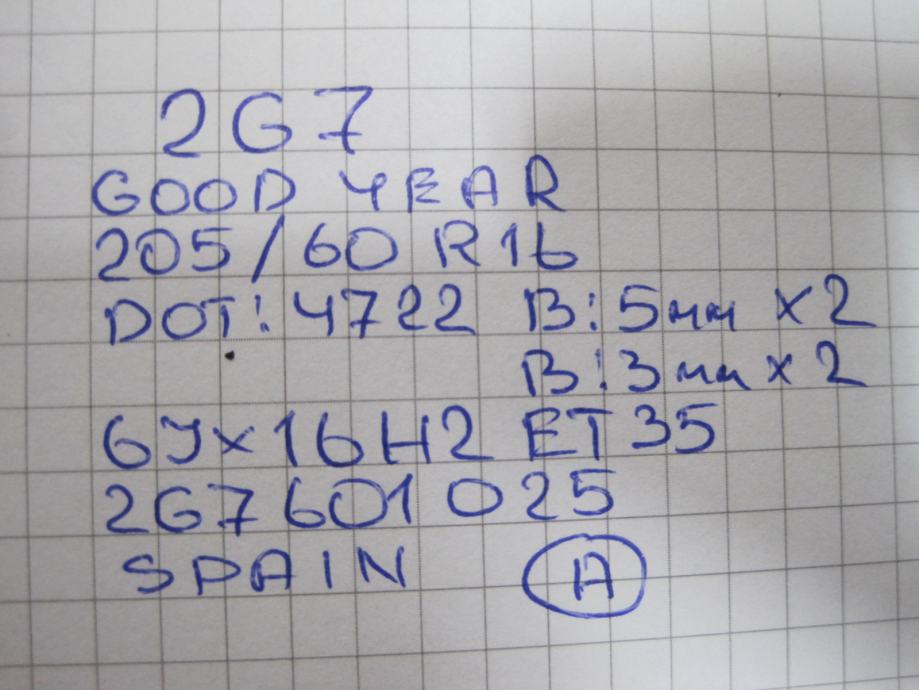 2G7
GOOD YEAR
205/60 R16
DOT: 4722 B: 5мм x2
B: 3мм x2
6Jx16H2 ET 35
2G7 601 025
SPAIN A